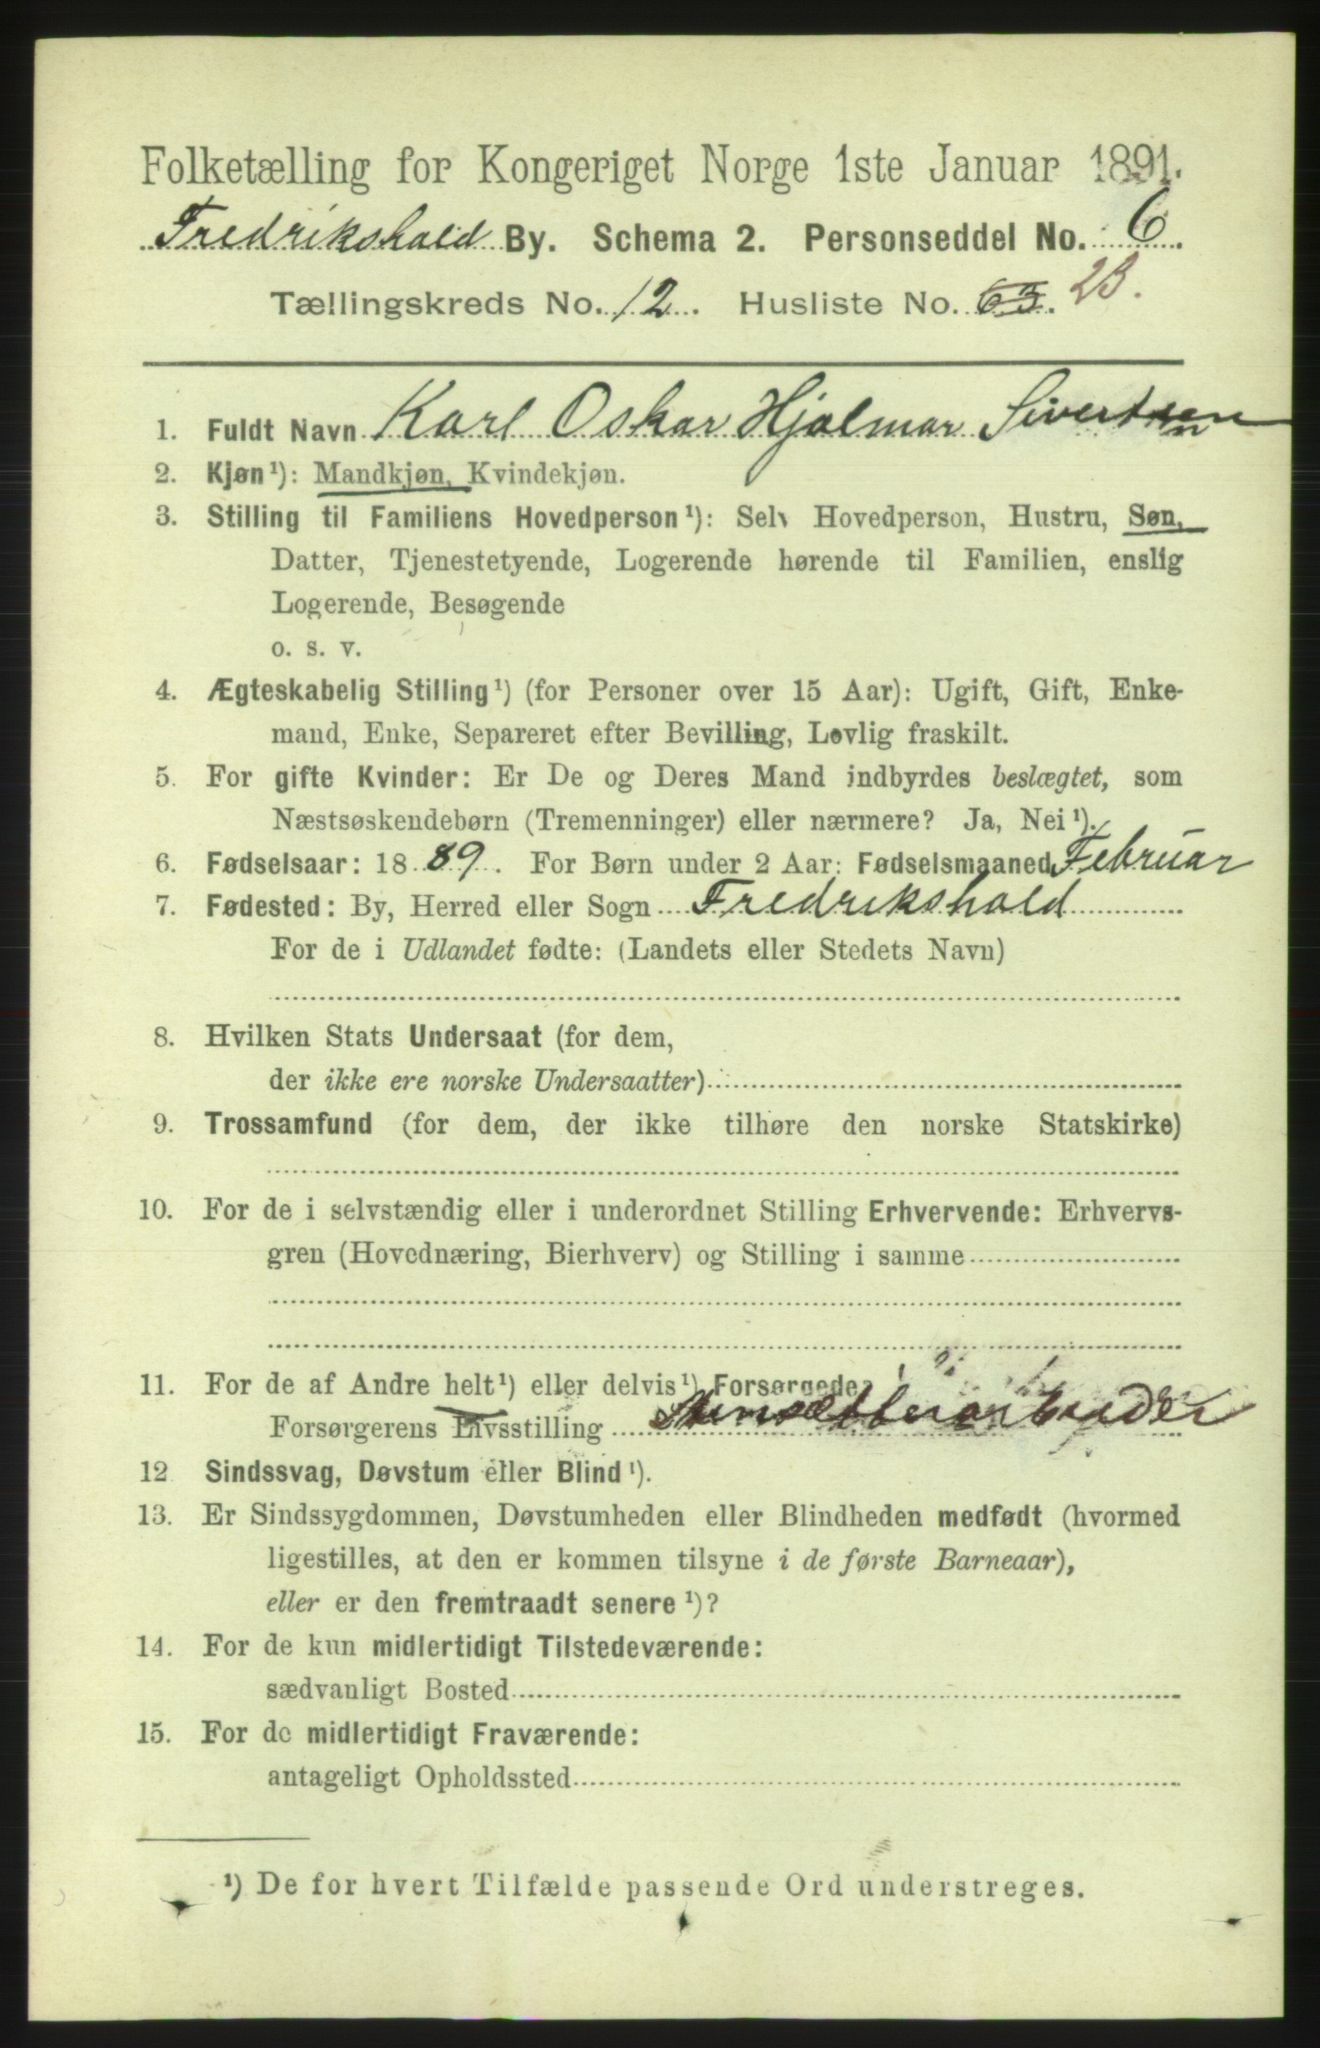 Folketælling for Kongeriget Norge 1ste Januar 1891.
Fredrikshald By. Schema 2. Personseddel No. 6.
Tællingskreds No. 12. Husliste No. 63. 23.
1. Fuldt Navn Karl Oskar Hjalmar Sivertsen
2. Kjøn¹): Mandkjøn, Kvindekjøn.
3. Stilling til Familiens Hovedperson¹): Selv Hovedperson, Hustru, Søn,
Datter, Tjenestetyende, Logerende hørende til Familien, enslig
Logerende, Besøgende
o. s. v.
4. Ægteskabelig Stilling¹) (for Personer over 15 Aar): Ugift, Gift, Enke-
mand, Enke, Separeret efter Bevilling, Lovlig fraskilt.
5. For gifte Kvinder: Er De og Deres Mand indbyrdes beslægtet, som
Næstsøskendebørn (Tremenninger) eller nærmere? Ja, Nei¹).
6. Fødselsaar: 1889. For Børn under 2 Aar: Fødselsmaaned Februar
7. Fødested: By, Herred eller Sogn Fredrikshald
For de i Udlandet fødte: (Landets eller Stedets Navn)
8. Hvilken Stats Undersaat (for dem,
der ikke ere norske Undersaatter)
9. Trossamfund (for dem, der ikke tilhøre den norske Statskirke)
10. For de i selvstændig eller i underordnet Stilling Erhvervende: Erhvervs-
gren (Hovednæring, Bierhverv) og Stilling i samme
11. For de af Andre helt¹) eller delvis¹) Forsørgede:
Forsørgerens Livsstilling
12 Sindssvag, Døvstum eller Blind¹).
13. Er Sindssygdommen, Døvstumheden eller Blindheden medfødt (hvormed
ligestilles, at den er kommen tilsyne i de første Barneaar),
eller er den fremtraadt senere¹)?
14. For de kun midlertidigt Tilstedeværende:
sædvanligt Bosted
15. For de midlertidigt Fraværende:
antageligt Opholdssted
¹) De for hvert Tilfælde passende Ord understreges.